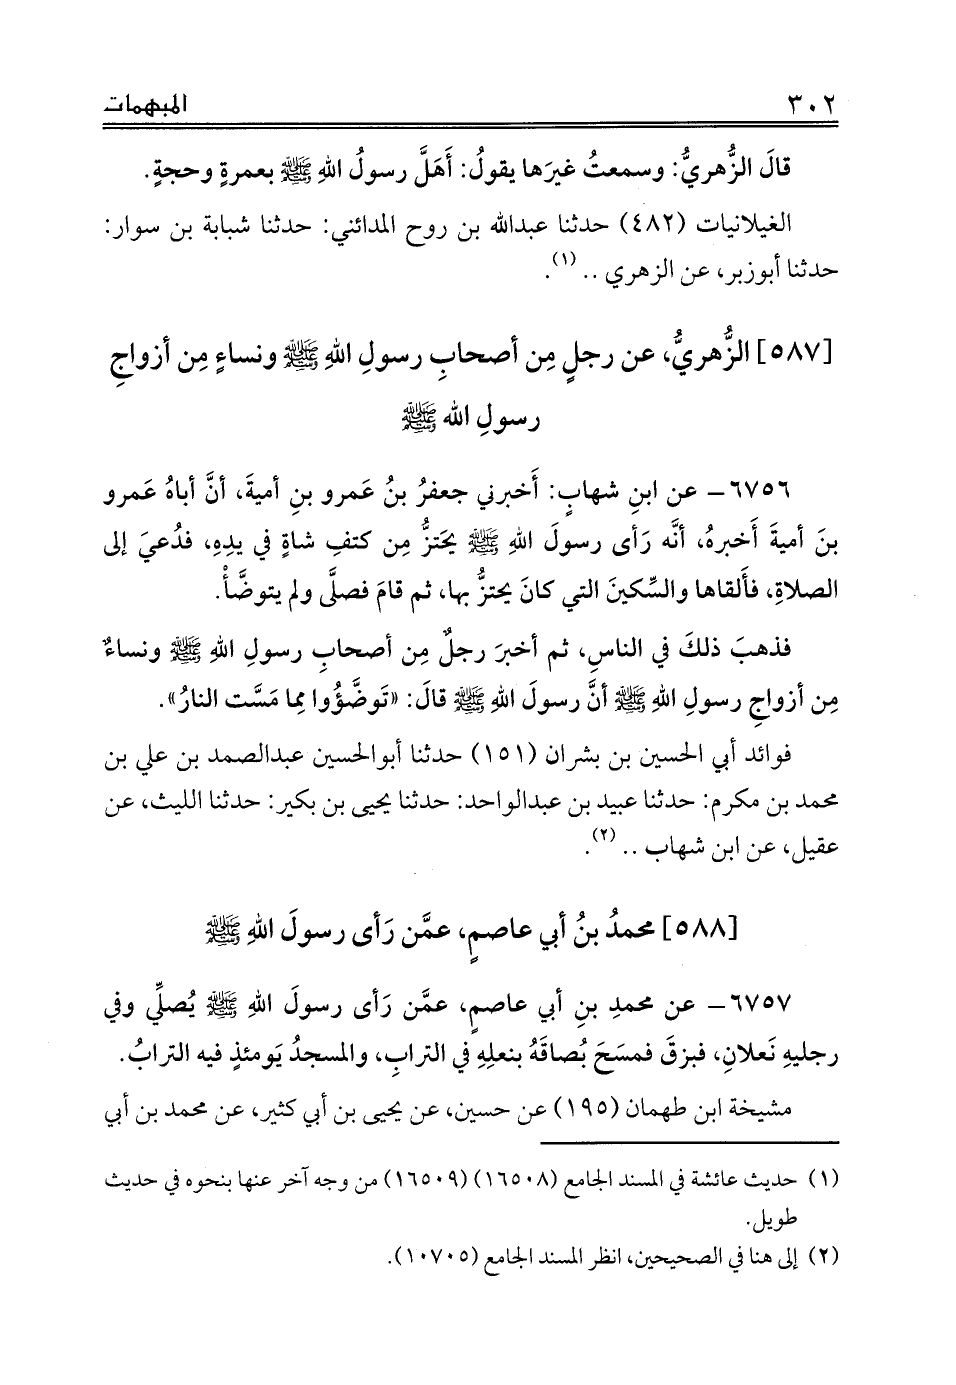 ٣٠٢ المبهمات
قالَ الزُّهريُّ: وسمعتُ غيرَها يقولُ: أَهَلَّ رسولُ اللهِ ﷺ بعمرةٍ وحجةٍ.
الغيلانيات (٤٨٢) حدثنا عبدالله بن روح المدائني: حدثنا شبابة بن سوار:
حدثنا أبوزبر، عن الزهري .. (١).
[٥٨٧] الزُّهريُّ، عن رجلٍ مِن أصحابِ رسولِ اللهِ ﷺ ونساءٍ مِن أزواجِ
رسولِ الله ﷺ
٦٧٥٦- عن ابنِ شهابٍ: أَخبرني جعفرُ بنُ عَمرو بنِ أميةَ، أنَّ أباهُ عَمرو
بنَ أميةَ أَخبرهُ، أنَّه رَأى رسولَ اللهِ ﷺ يحَتزُّ مِن كتفِ شاةٍ في يدِهِ، فدُعيَ إلى
الصلاةِ، فأَلقاها والسِّكينَ التي كانَ يحتزُّ بها، ثم قامَ فصلَّى ولم يتوضَّأْ.
فذهبَ ذلكَ في الناسِ، ثم أخبرَ رجلٌ مِن أصحابِ رسولِ اللهِ ﷺ ونساءٌ
مِن أزواجِ رسولِ اللهِ ﷺ أنَّ رسولَ اللهِ ﷺ قالَ: «تَوضَّؤُوا مِما مَسَّت النارُ».
فوائد أبي الحسين بن بشران (١٥١) حدثنا أبوالحسين عبدالصمد بن علي بن
محمد بن مكرم: حدثنا عبيد بن عبدالواحد: حدثنا يحيى بن بكير: حدثنا الليث، عن
عقيل، عن ابن شهاب .. (٢).
[٥٨٨] محمدُ بنُ أبي عاصمٍ، عمَّن رَأى رسولَ اللهِ ﷺ
٦٧٥٧- عن محمدِ بنِ أبي عاصمٍ، عمَّن رَأى رسولَ اللهِ ﷺ يُصلِّي وفي
رجليهِ نَعلانِ، فبزقَ فمسَحَ بُصاقَهُ بنعلِهِ في الترابِ، والمسجدُ يَومئذٍ فيه الترابُ.
مشيخة ابن طهمان (١٩٥) عن حسين، عن يحيى بن أبي كثير، عن محمد بن أبي
(١) حديث عائشة في المسند الجامع (١٦٥٠٨) (١٦٥٠٩) من وجه آخر عنها بنحوه في حديث
طويل.
(٢) إلى هنا في الصحيحين، انظر المسند الجامع (١٠٧٠٥).